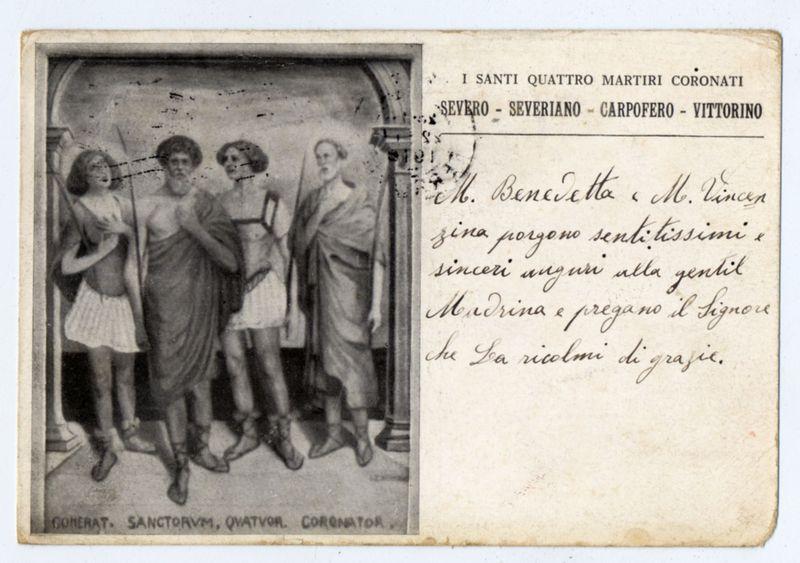 I SANTI QUATTRO MARTIRI CORONATI
SEVERO - SEVERIANO - CARPOFERO - VITTORINO
M. Benedetta e M. Vincen
zina porgono sentitissimi e
sinceri auguri alla gentil
Madrina e pregano il Signore
che La ricolmi di grazie.
SANCTORVM, QVATVOR. CORONATOR.